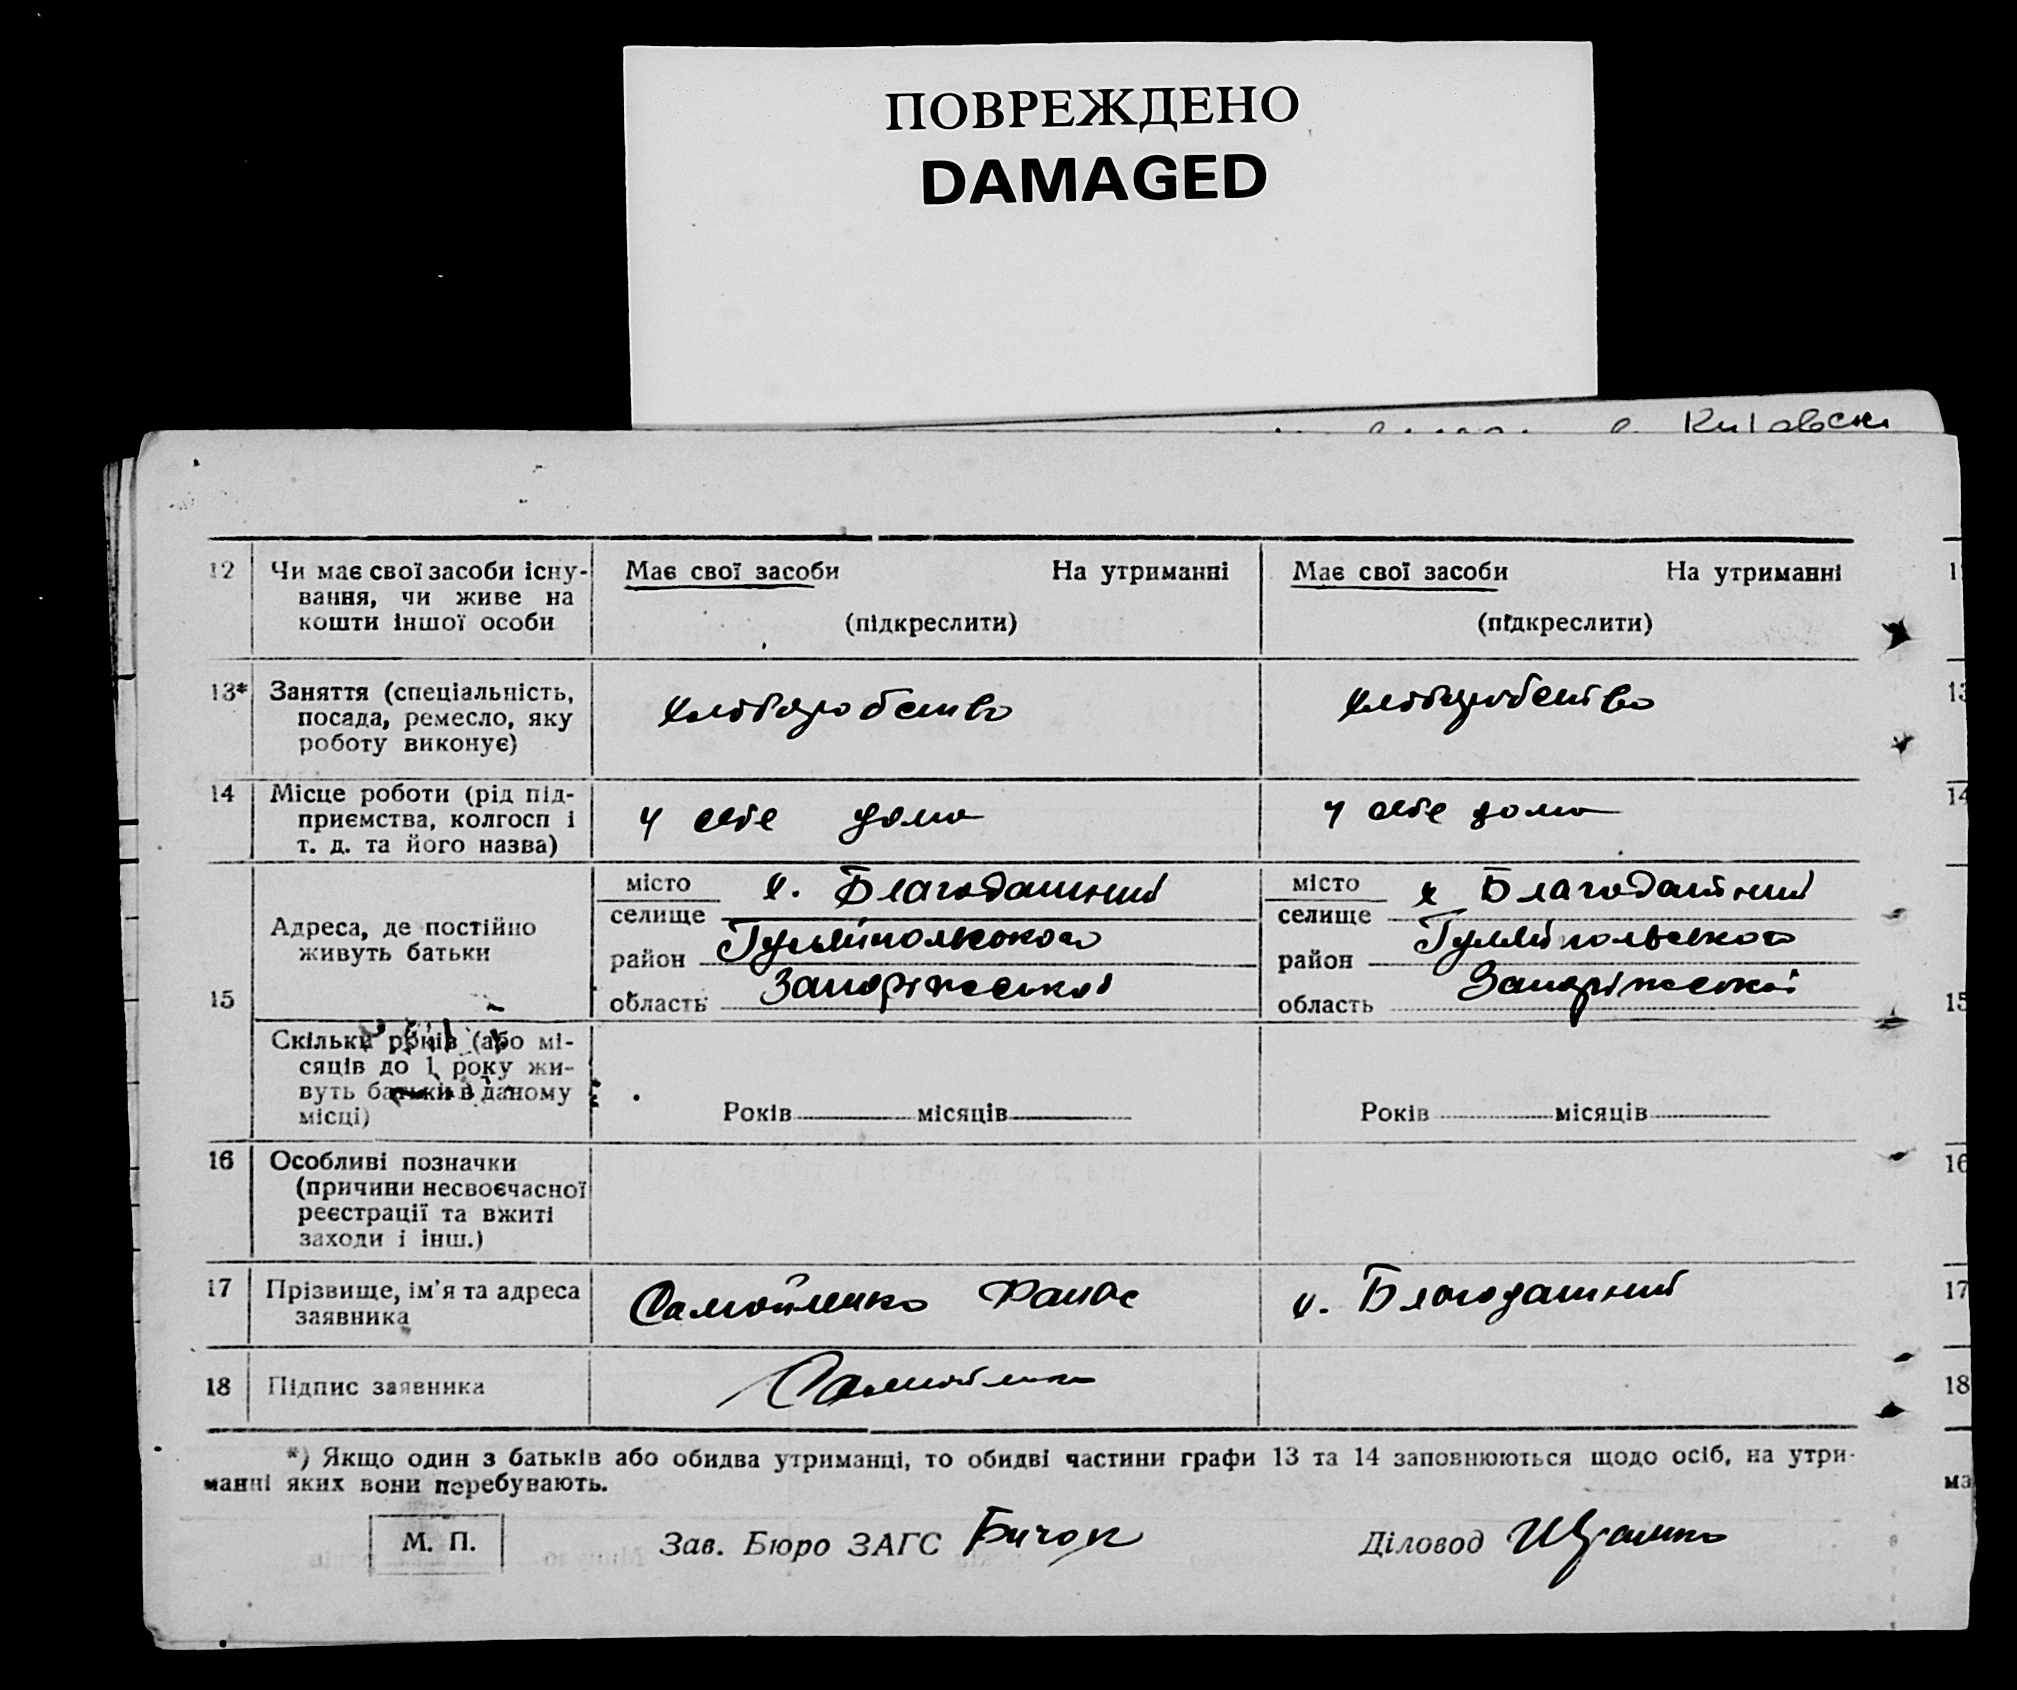 ПОВРЕЖДЕНО
DAMAGED
12 Чи має свої засоби існу-
вання, чи живе на
кошти іншої особи
Має свої засоби На утриманні
(підкреслити)
Має свої засоби На утриманні
(підкреслити)
13* Заняття (спеціальність,
посада, ремесло, яку
роботу виконує)
хліборобство
хліборобство
14 Місце роботи (рід під-
приємства, колгосп і
т. д. та його назва)
у себе дома
у себе дома
15 Адреса, де постійно
живуть батьки
місто х. Благодатний
селище
район Гуляйпольського
область Запоріжської
місто х Благодатний
селище
район Гуляйпольського
область Запоріжської
Скільки років (або мі-
сяців до 1 року жи-
вуть батьки в даному
місці)
Років місяців
Років місяців
16 Особливі позначки
(причини несвоєчасної
реєстрації та вжиті
заходи і інш.)
17 Прізвище, ім'я та адреса
заявника
Самойленко Панас
х. Благодатний
18 Підпис заявника
Самойленко
*) Якщо один з батьків або обидва утриманці, то обидві частини графи 13 та 14 заповнюються щодо осіб, на утри-
манні яких вони перебувають.
М. П.
Зав. Бюро ЗАГС Бичок
Діловод
13
14
15
16
17
18
ма